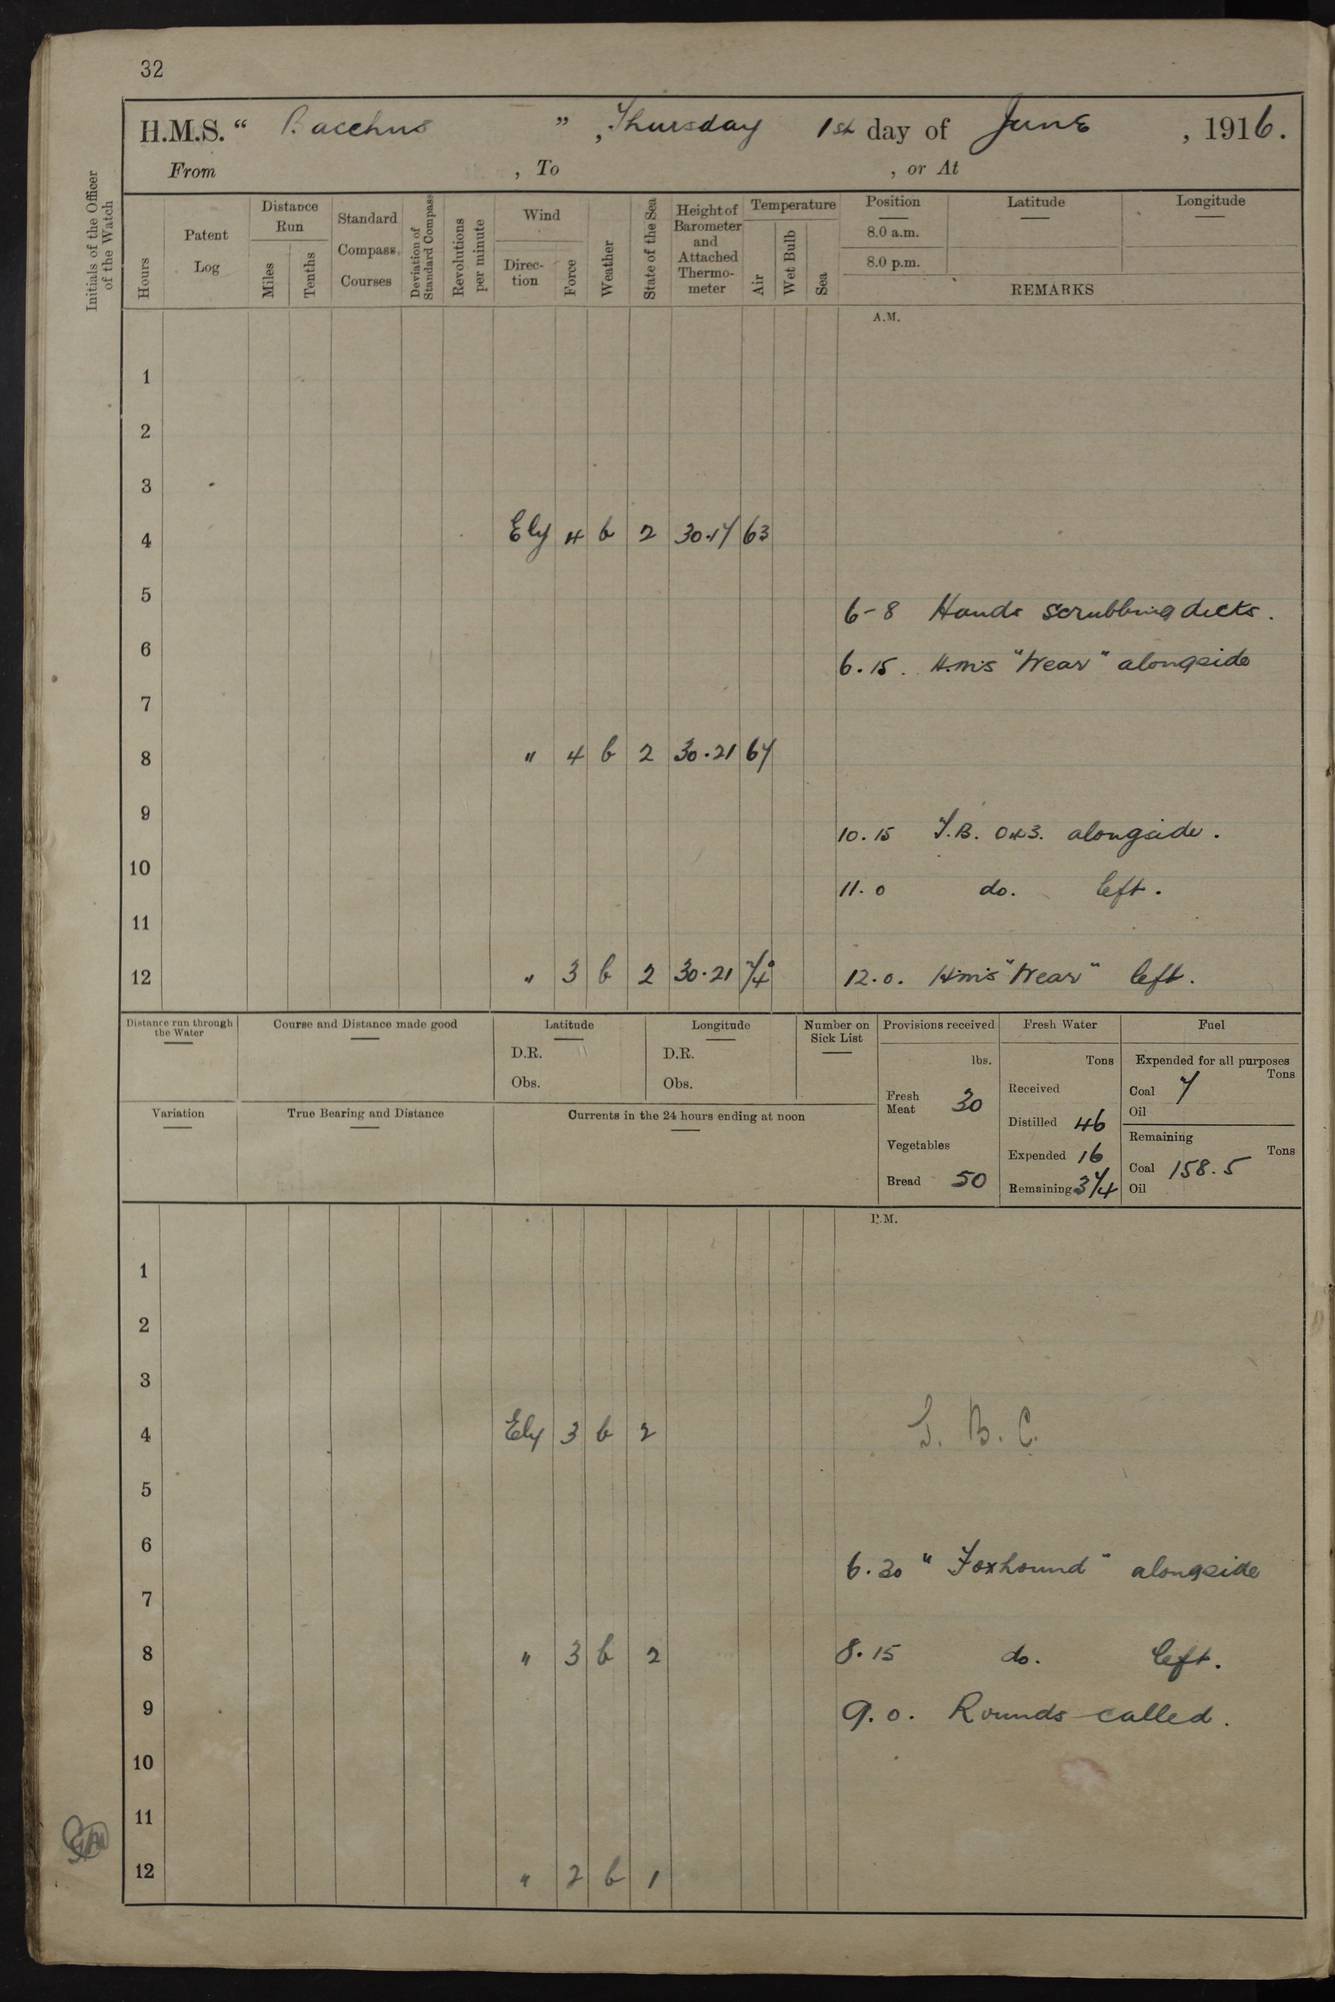 32
H.M.S. “ Bacchus ” , Thursday 1st day of June , 1916.
From , To , or At
Initials of the Officer of the Watch
Hours
Patent Log
Distance Run
Miles
Tenths
Standard Compass Courses
Deviation of Standard Compass
Revolutions per minute
Wind
Direction
Force
Weather
State of the Sea
Height of Barometer and Attached Thermometer
Temperature
Air
Wet Bulb
Sea
Position
8.0 a.m.
8.0 p.m.
Latitude
Longitude
REMARKS
A.M.
1
2
3
4 Ely 4 b 2 30.17 63
5
6-8 Hands scrubbing decks.
6
6.15. H.M.S "Wear" alongside
7
8 " 4 b 2 30.21 67
9
10.15 T.B. 043. alongside.
10
11.0 do. left.
11
12 " 3 b 2 30.21 74 12.0. H.M.S "Wear" left.
Distance run through the Water
Course and Distance made good
Latitude
D.R.
Obs.
Longitude
D.R.
Obs.
Number on Sick List
Provisions received
lbs.
Fresh Meat 30
Vegetables
Bread 50
Fresh Water
Tons
Received
Distilled 46
Expended 16
Remaining 374
Fuel
Expended for all purposes
Tons
Coal 7
Oil
Remaining
Tons
Coal 158.5
Oil
Variation
True Bearing and Distance
Currents in the 24 hours ending at noon
P.M.
1
2
3
4 Ely 3 b 2
5
6
6.30 " Foxhound " alongside
7
8 " 3 b 2 8.15 do. left.
9 9.0. Rounds called.
10
11
12 " 2 b 1